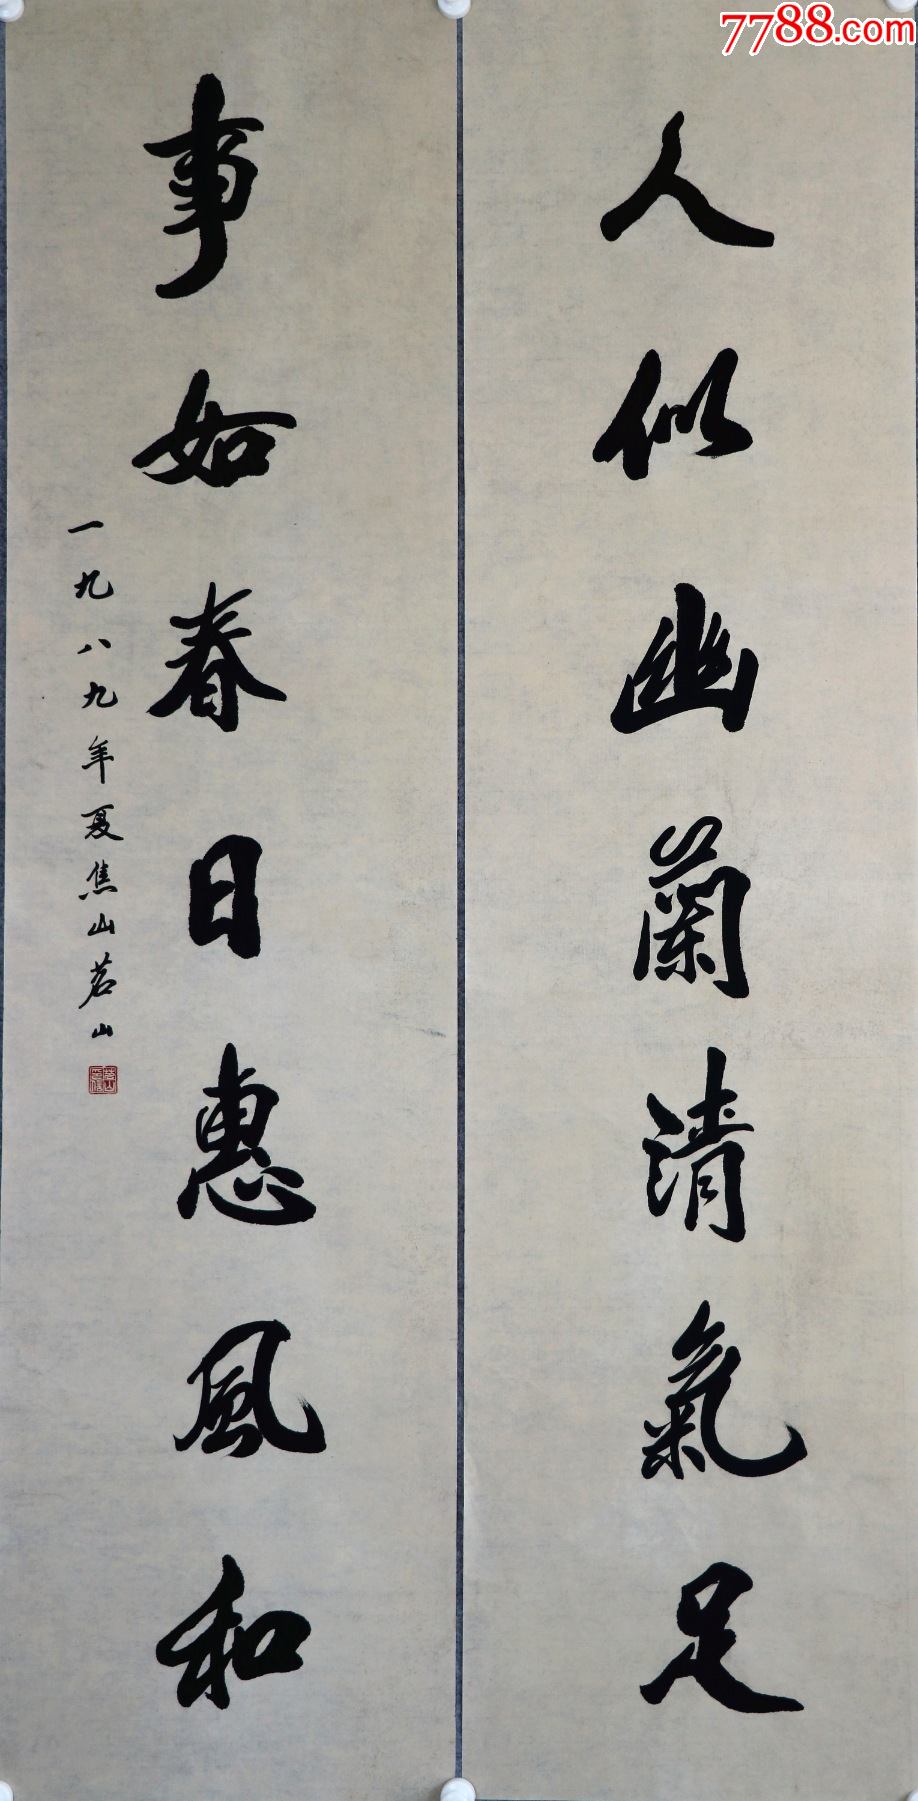 7788.com
人似幽蘭清氣足
事如春日惠風和
一九八九年夏焦山茗山